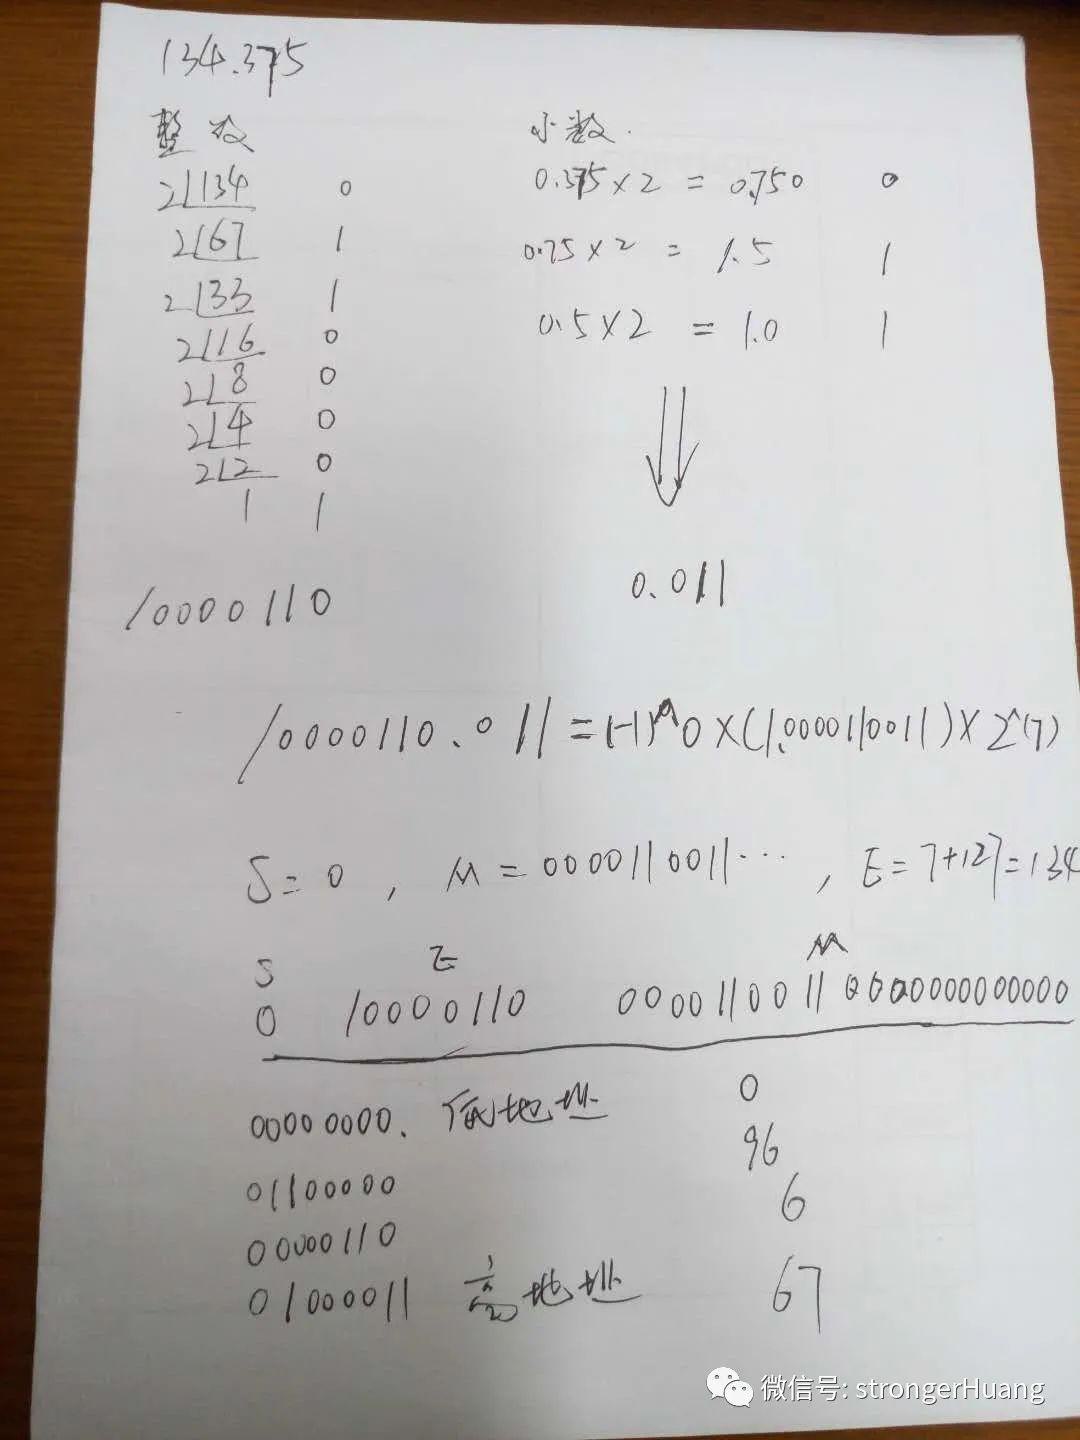 134.375
整数 小数.
2 134 0 0.375×2 = 0.750 0
2 67 1 0.75×2 = 1.5 1
2 33 1 0.5×2 = 1.0 1
2 16 0
2 8 0
2 4 0
2 2 0
1 1
10000110 0.011
10000110.011=(-1)^0×(1.0000110011)×2^(7)
S=0 , M=0000110011··· , E=7+127=134
S E M
0 10000110 00001100110000000000000
00000000. 低地址 0
01100000 96
00000110 6
01000011 高地址 67
微信号: strongerHuang